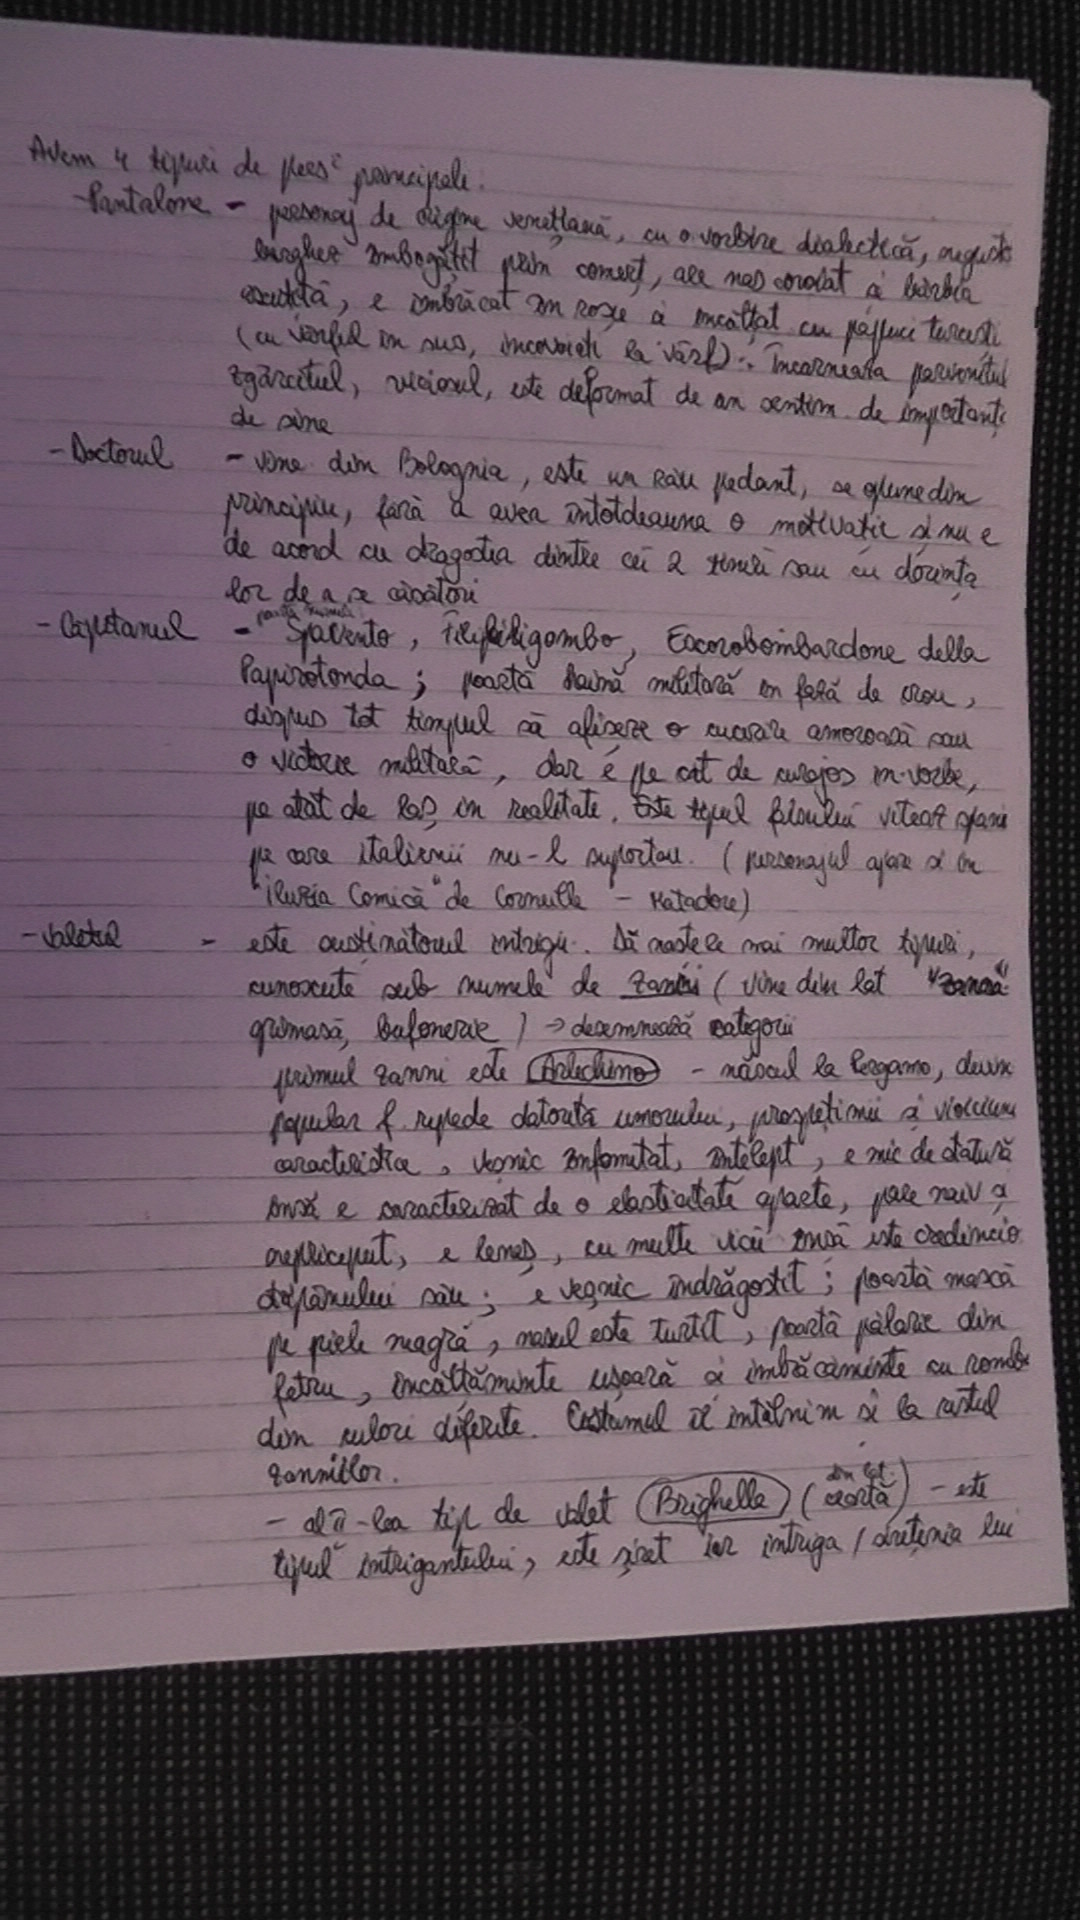 Avem 4 tipuri de pers principale:
- Pantalone - personaj de origine venețiană, cu o vorbire dialectică,
burghez îmbogățit prin comerț, are nas coroiat și bărbia
ascuțită, e îmbrăcat în roșu și încălțat cu papuci turcești
(cu vârful în sus, încovoiați la vârf). Încarnează parvenitul
zgârcitul, viciosul, este deformat de un sentim. de importanț
de sine
- Doctorul - vine din Bolognia, este un rău pedant, se opune din
principiu, fără a avea întotdeauna o motivație și nu e
de acord cu dragostea dintre cei 2 tineri sau cu dorința
lor de a se căsători
- Căpitanul - poartă numele Spavento, Escorobombardone della
Papirotonda; poartă haină militară de
dispus tot timpul să afișeze o cucerire amoroasă sau
o victorie militară, dar e pe cât de curajos în vorbe,
pe atât de laș în realitate. Este tipul falsului viteaz
pe care italienii nu-l suportau. (personajul apare și în
"Iluzia Comică" de Corneille - Matadore)
- Valetul - este susținătorul intrigii. Dă naștere mai multor tipuri,
cunoscute sub numele de Zanni (vine din lat
grimasă, bufonerie) → desemnează categorii
primul zanni este Arlechino - născut la Bergamo, devine
popular f. repede datorită umorului, prospețimii și
caracteristice, veșnic înfometat, înțelept, e mic de statură
însă e caracterizat de o elasticitate aparte, pare naiv și
nepriceput, e leneș, cu multe vicii însă este credincio
stăpânului său; e veșnic îndrăgostit; poartă mască
pe piele neagră, nasul este turtit, poartă pălărie din
fetru, încălțăminte ușoară și îmbrăcăminte cu romb
din culori diferite. Costumul îl întâlnim și la restul
zannilor.
- al II-lea tip de valet Brighella (din lat. ceartă) - este
tipul intrigantului, este șiret iar intriga / șiretenia lui